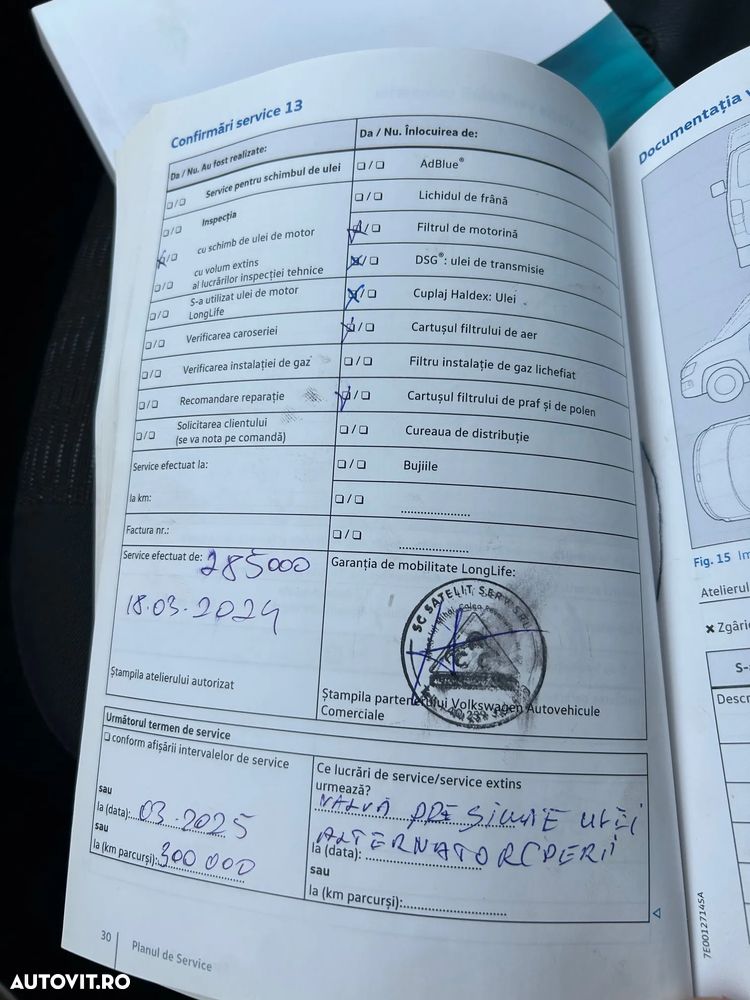 Confirmări service 13
Da / Nu. Au fost realizate:
Service pentru schimbul de ulei
Inspecția
cu schimb de ulei de motor
cu volum extins
al lucrărilor inspecției tehnice
S-a utilizat ulei de motor
LongLife
Verificarea caroseriei
Verificarea instalației de gaz
Recomandare reparație
Solicitarea clientului
(se va nota pe comandă)
Service efectuat la:
la km:
Factura nr.:
Da / Nu. Înlocuirea de:
AdBlue®
Lichidul de frână
Filtrul de motorină
DSG®: ulei de transmisie
Cuplaj Haldex: Ulei
Cartușul filtrului de aer
Filtru instalație de gaz lichefiat
Cartușul filtrului de praf și de polen
Cureaua de distribuție
Bujiile
Service efectuat de: 285000
18.03.2024
Ștampila atelierului autorizat
Garanția de mobilitate LongLife:
SC SATELIT SERV SRL
Ștampila partenerului Volkswagen Autovehicule
Comerciale
Următorul termen de service
conform afișării intervalelor de service
sau
la (data): 03.2025
sau
la (km parcurși): 300 000
Ce lucrări de service/service extins
urmează?
PRESIUNE ULEI
ALTERNATOR
la (data):
sau
la (km parcurși):
30
Planul de Service
Documentația
Fig. 15
Atelierul
Zgârie
7E0012714SA
AUTOVIT.RO